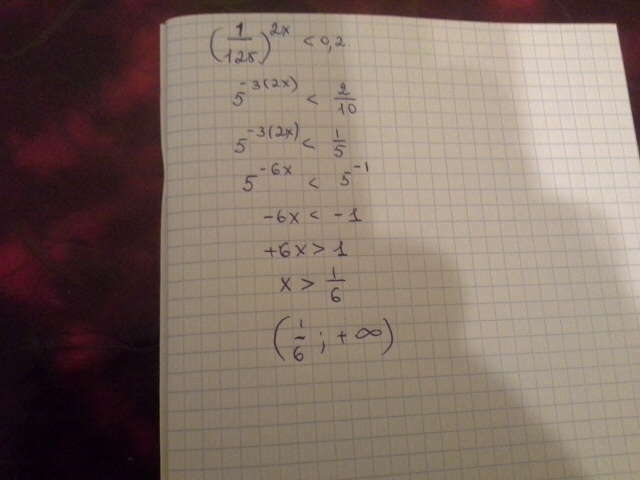 (1/125)^2x < 0,2
5^-3(2x) < 2/10
5^-3(2x) < 1/5
5^-6x < 5^-1
-6x < -1
+6x > 1
x > 1/6
(1/6 ; +∞)